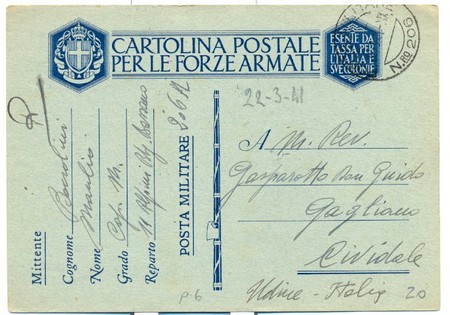 CARTOLINA POSTALE
PER LE FORZE ARMATE
ESENTE DA
TASSA PER
L'ITALIA E
SVE COLONIE
N.RO 206
22-3-41
A M. Rev.
Gasparotto Don Guido
Gagliano
Cividale
Udine - Italia
20
Mittente
Cognome
Nome Manlio
Grado Cap. M.
Reparto 11 Alpini Btg.
POSTA MILITARE 206 A
P-6